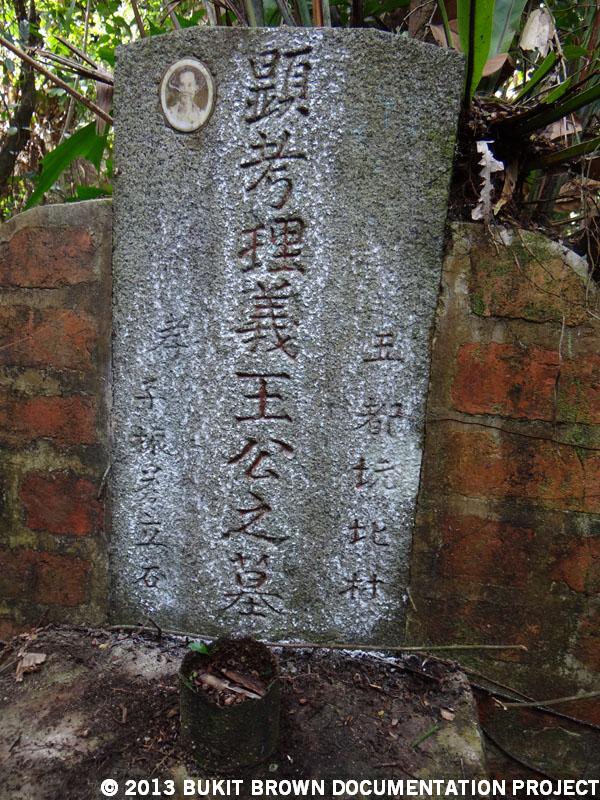 五都坑北村
顕考理義王公之墓
孝
子振立石
© 2013 BUKIT BROWN DOCUMENTATION PROJECT